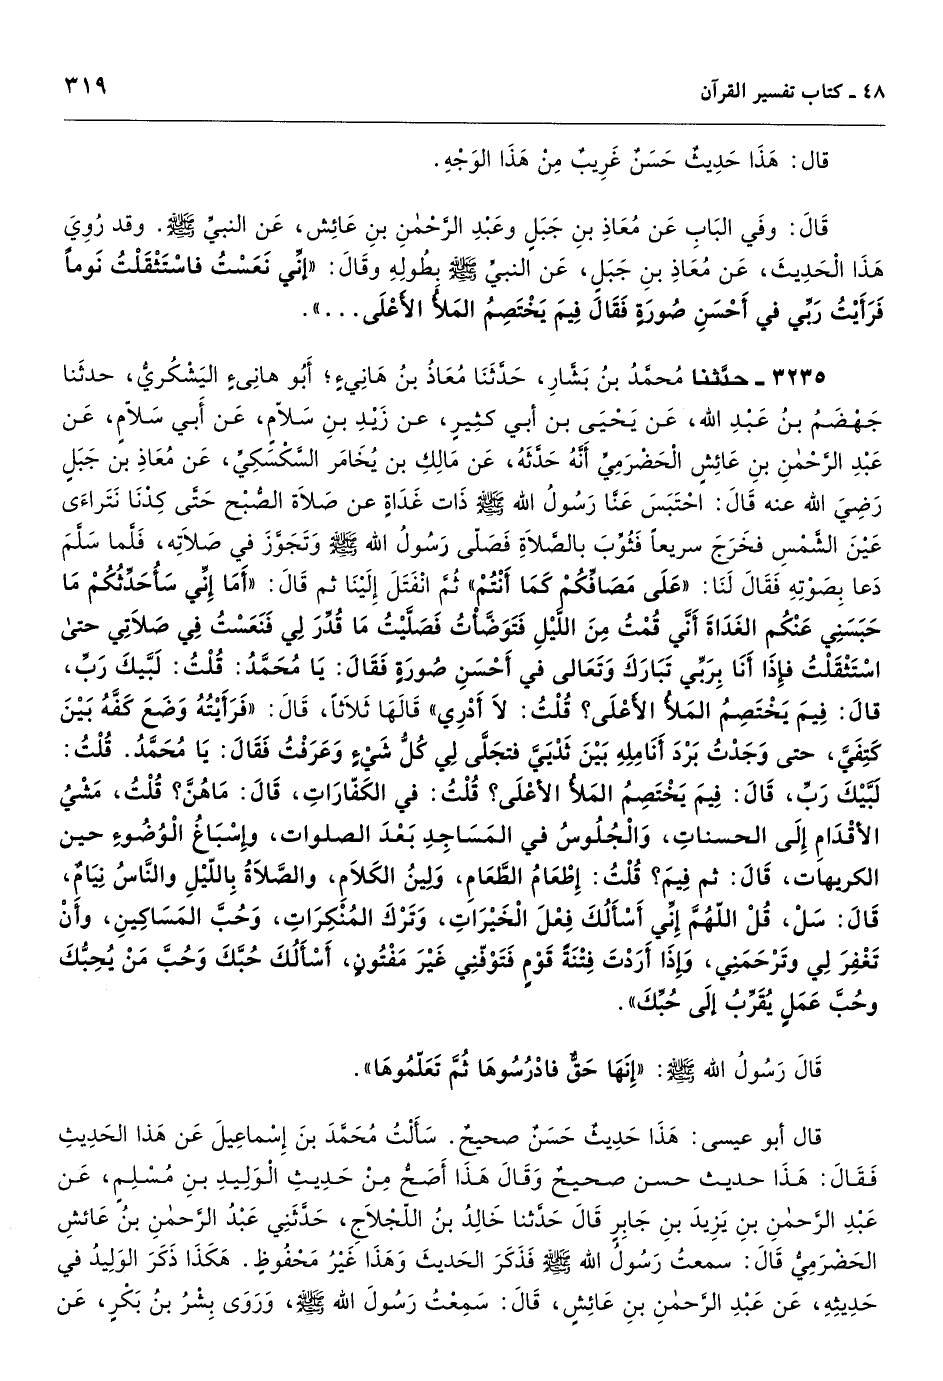 ٤٨ ـ كتاب تفسير القرآن
٣١٩
قال: هَذَا حَدِيثٌ حَسَنٌ غَرِيبٌ مِنْ هَذَا الوَجْهِ.
قَالَ: وفَي البَابِ عَن مُعَاذِ بنِ جَبَلٍ وعَبْدِ الرَّحْمٰنِ بنِ عَائِش، عَن النبيِّ ﷺ. وقد رُوِيَ
هَذَا الْحَدِيثَ، عَن مُعَاذِ بنِ جَبَلٍ، عَن النبيِّ ﷺ بِطُولِهِ وقَالَ: «إنِّي نَعَسْتُ فاسْتَثْقَلْتُ نَوماً
فَرَأَيْتُ رَبِّي في أحْسَنِ صُورَةٍ فَقَالَ فِيمَ يَخْتَصِمُ المَلأُ الأعْلَى...».
٣٢٣٥ ـ حدَّثنا مُحمَّدُ بنُ بَشَّارٍ، حَدَّثَنَا مُعَاذُ بنُ هَانِيءٍ؛ أَبُو هانِيءٍ اليَشْكُرِيُّ، حدثَنا
جَهْضَمُ بنُ عَبْدِ الله، عَن يَحْيَى بن أبي كثِيرٍ، عن زَيْدِ بنِ سَلاَّمٍ، عَن أَبي سَلاَّمٍ، عَن
عَبْدِ الرَّحْمٰنِ بنِ عَائِشٍ الْحَضْرَمِيِّ أَنَّهُ حَدَّثَهُ، عَن مَالِكِ بن يُخَامَر السَّكْسَكِيِّ، عَن مُعَاذِ بن جَبَلٍ
رَضِيَ الله عنه قَالَ: احْتَبَسَ عَنَّا رَسُولُ الله ﷺ ذَات غَدَاةٍ عن صَلاَة الصُّبْح حَتَّى كِدْنَا نَتَراءَى
عَيْنَ الشَّمْسِ فخَرَجَ سريعاً فَثُوِّبَ بالصَّلاَةِ فَصَلَّى رَسُولُ الله ﷺ وَتَجَوَّزَ في صَلاَتِه، فَلَّما سَلَّمَ
دَعا بِصَوْتِهِ فَقَالَ لنَا: «عَلَى مَصَافِّكُمْ كَمَا أَنْتُمْ» ثُمَّ انْفَتَلَ إلَيْنَا ثم قَالَ: «أَمَا إنِّي سَأُحَدِّثُكُمْ مَا
حَبَسَنِي عَنْكُم الغَدَاةَ أَنِّي قُمْتُ مِنَ اللَّيْلِ فَتَوَضَّأْتُ فَصَلَّيْتُ مَا قُدِّرَ لِي فَنَعَسْتُ فِي صَلاَتِي حتىٰ
اسْتَثْقَلْتُ فإِذَا أَنَا بِرَبِّي تَبَارَكَ وَتَعَالى في أحْسَنِ صُورَةٍ فَقَالَ: يا مُحَمَّدُ: قُلْتُ: لَبَّيكَ رَبِّ،
قالَ: فِيمَ يَخْتَصِمُ المَلأُ الأعْلَى؟ قُلْتُ: لاَ أَدْرِي» قَالَهَا ثَلاثاً، قَالَ: «فَرَأَيْتُهُ وَضَعَ كَفَّهُ بَيْنَ
كَتِفَيَّ، حتى وَجَدْتُ بَرْدَ أنَامِلِهِ بَيْنَ ثَدْيَيَّ فتجَلَّى لِي كُلُّ شَيْءٍ وَعَرَفْتُ فقَالَ: يا مُحَمَّدُ. قُلْتُ:
لَبَّيْكَ رَبِّ، قَالَ: فِيمَ يَخْتَصِمُ المَلأُ الأعْلَى؟ قُلْتُ: في الكَفّارَاتِ، قَالَ: مَاهُنَّ؟ قُلْتُ، مَشْيُ
الأَقْدَامِ إلَى الحسناتِ، وَالْجُلُوسُ في المَسَاجِدِ بَعْدَ الصلوات، وإسْبَاغُ الْوُضُوءِ حين
الكريهات، قَالَ: ثم فِيمَ؟ قُلْتُ: إطْعَامُ الطَّعَامِ، وَلِينُ الكَلاَمِ، والصَّلاَةُ بِاللَّيْلِ والنَّاسُ نِيَامٌ،
قَالَ: سَلْ، قُلْ اللّهُمَّ إنِّي أَسْأَلُكَ فِعْلَ الْخَيْرَاتِ، وَتَرْكَ المُنْكِرَاتِ، وَحُبَّ المَسَاكِينِ، وأَنْ
تَغْفِرَ لِي وتَرْحَمَنِي، وَإذَا أَرَدْتَ فِتْنَةً قَوْمٍ فَتَوَفّنِي غَيْرَ مَفْتُونٍ، أَسْأَلُكَ حُبَّكَ وَحُبَّ مَنْ يُحِبُّكَ
وحُبَّ عَمَلٍ يُقَرِّبُ إلَى حُبِّكَ».
قَالَ رَسُولُ الله ﷺ: «إنَهَا حَقٌّ فادْرُسُوهَا ثُمَّ تَعَلّمُوهَا».
قال أبو عيسى: هَذَا حَدِيثٌ حَسَنٌ صحيحٌ. سَأَلْتُ مُحَمَّدَ بنَ إسْماعِيلَ عَن هَذَا الحَدِيثِ
فَقَالَ: هَذَا حديث حسن صحيحٌ وَقَالَ هَذَا أَصَحُّ مِنْ حَدِيثِ الْوَلِيدِ بنِ مُسْلِمٍ، عَن
عَبْدِ الرحمٰنِ بنِ يَزِيدَ بنِ جَابِرٍ قَالَ حَدَّثنا خَالِدُ بنُ اللّجْلاَجِ، حَدَّثَنِي عَبْدُ الرحمٰنِ بنُ عَائشٍ
الحَضْرَمِيُّ قَالَ: سمعتُ رَسُولُ الله ﷺ فَذَكَرَ الحَديثَ وَهَذَا غَيْرُ مَحْفُوظٍ. هَكَذَا ذَكَرَ الوَلِيدُ في
حَدِيثِهِ، عَن عَبْدِ الرَّحمٰنِ بنِ عَائِشٍ، قَالَ: سَمِعْتُ رَسُولَ الله ﷺ، وَرَوَى بِشْرُ بنُ بَكْرٍ، عَن